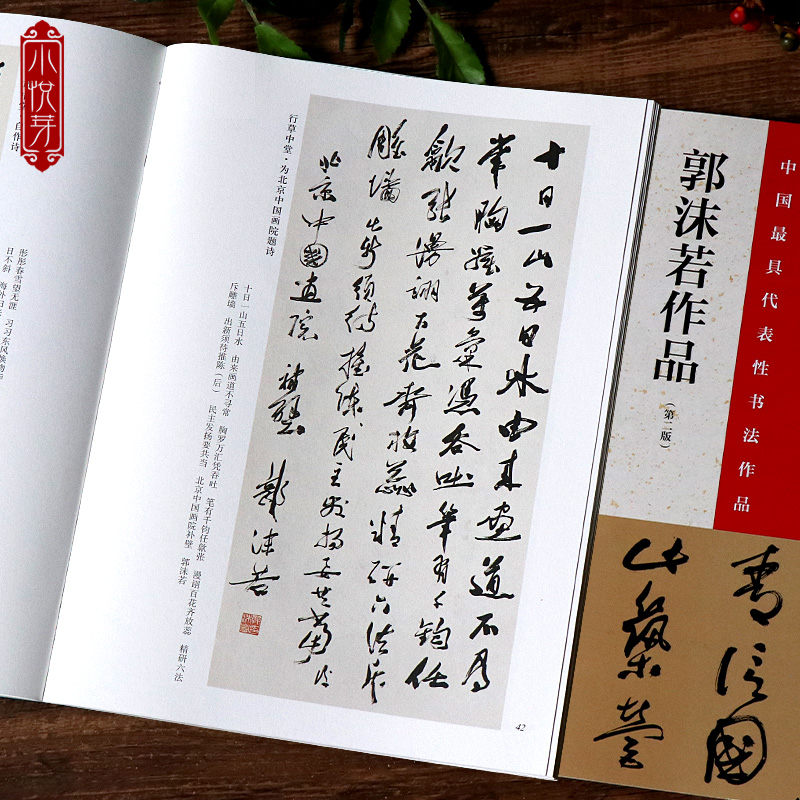 小悦芽
自作诗
彤彤春雪望无涯 习习东风换物
日不斜 海外归
行草中堂·为北京中国画院题诗
十日一山五日水由来畫道不尋
常胸羅萬彙憑吞吐筆有千鈞任
歙張漫詡百花齊放蕊精研六法斥
雕墻出新須待推陳民主發揚要共當
北京中國畫院補壁 郭沫若
十日一山五日水 由来画道不寻常 胸罗万汇凭吞吐 笔有千钧任歙张 漫诩百花齐放蕊 精研六法
斥雕墙 出新须待推陈（后） 民主发扬要共当 北京中国画院补壁 郭沫若
42
中国最具代表性书法作品
郭沫若作品
（第二版）
國